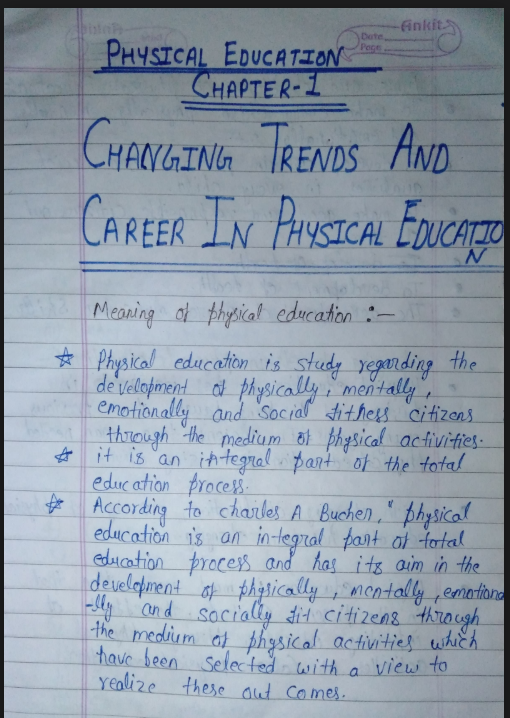 Ankit
Date
Page
PHYSICAL EDUCATION
CHAPTER-1
CHANGING TRENDS AND
CAREER IN PHYSICAL EDUCATIO
N
Meaning of physical education :-
☆ Physical education is study regarding the
development of physically, mentally,
emotionally and social fitness citizens
through the medium of physical activities.
☆ it is an integral part of the total
education process.
☆ According to charles A Bucher, " physical
education is an integral part of total
education process and has its aim in the
development of physically, mentally, emotiona
-lly and socially fit citizens through
the medium of physical activities which
have been selected with a view to
realize these out comes.